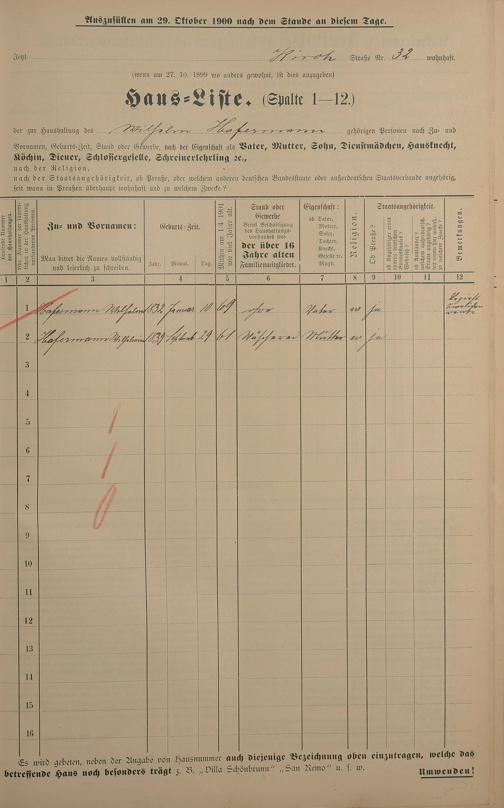 Auszufüllen am 29. Oktober 1900 nach dem Stande an diesem Tage.
Jetzt Kirch Straße Nr. 32 wohnhaft.
(wenn am 27. 10. 1899 wo anders gewohnt, ist dies anzugeben)
Haus-Liste. (Spalte 1—12.)
der zur Haushaltung des Wilhelm Hafermann gehörigen Personen nach Zu- und
Vornamen, Geburts-Zeit, Stand oder Gewerbe, nach der Eigenschaft als Vater, Mutter, Sohn, Dienstmädchen, Hausknecht,
Köchin, Diener, Schlossergeselle, Schreinerlehrling ꝛc.,
nach der Religion,
nach der Staatsangehörigkeit, ob Preuße, oder welchem anderen deutschen Bundesstaate oder außerdeutschen Staatsverbande angehörig,
seit wann in Preußen überhaupt wohnhaft und zu welchem Zwecke?
Zu- und Vornamen:
Man bittet die Namen vollständig
und leserlich zu schreiben.
Geburts-Zeit.
Jahr. Monat. Tag.
Mithin am 1. 4. 1901
wie viel Jahre alt.
Stand oder
Gewerbe
der über 16
Jahre alten
Familienmitglieder.
Eigenschaft:
ob Vater,
Mutter,
Sohn,
Tochter,
Knecht,
Geselle ꝛc.
Magd.
Religion.
Staatsangehörigkeit.
Ob Preuße?
Bemerkungen.
1 2 3 4 5 6 7 8 9 10 11 12
1 Hafermann Wilhelm 1832 Januar 10 69 ohne Vater ev ja
2 Hafermann 1839 29 61 Wäscherei Mutter ev ja
3
4
5 1
6 1
7
8 0
9
10
11
12
13
14
15
16
Es wird gebeten, neben der Angabe von Hausnummer auch diejenige Bezeichnung oben einzutragen, welche das
betreffende Haus noch besonders trägt z. B. „Villa Schönbrunn" „San Remo" u. s. w. Umwenden!